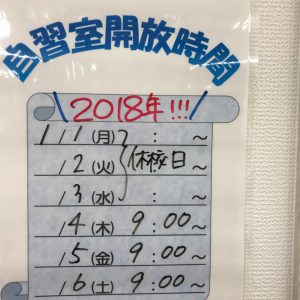 自習室開放時間
2018年!!!
1/1(月) : ~
/2(火) 休校日 ~
/3(水) : ~
/4(木) 9:00~
/5(金) 9:00~
/6(土) 9:00~